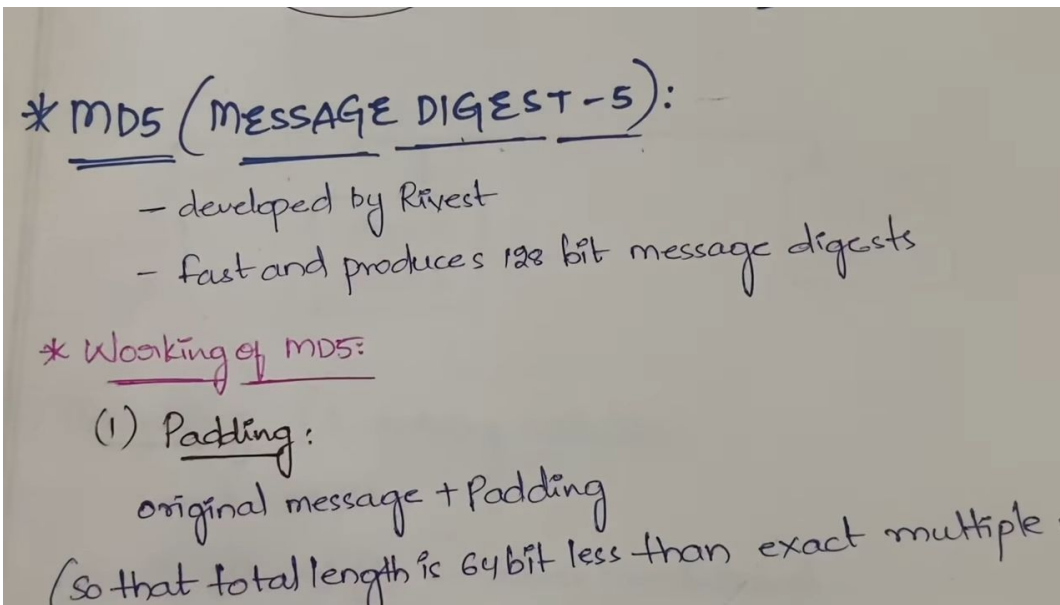 * MD5 (MESSAGE DIGEST-5):
- developed by Rivest
- fast and produces 128 bit message digests
* Working of MD5:
(1) Padding:
original message + Padding
(so that total length is 64 bit less than exact multiple